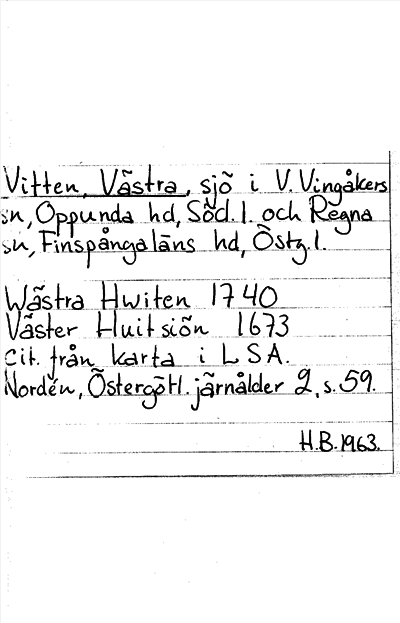 Vitten, Västra, sjö i V. Vingåkers
sn, Oppunda hd, Söd. l. och Regna
sn, Finspånga läns hd, Östg. l.
Wästra Hwiten 1740
Väster Huit siön 1673
Cit. från karta i LSA.
Nordén, Östergötl. järnålder 2, s. 59.
H.B. 1963.